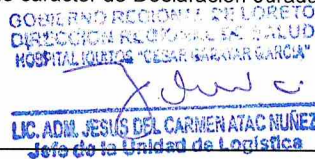 carácter de Declaración Jurada
GOBIERNO REGIONAL DE LORETO
DIRECCION REGIONAL DE SALUD
HOSPITAL IQUITOS "CESAR GARAYAR GARCIA"
LIC. ADM. JESUS DEL CARMEN ATAC NUÑEZ
Jefe de la Unidad de Logística